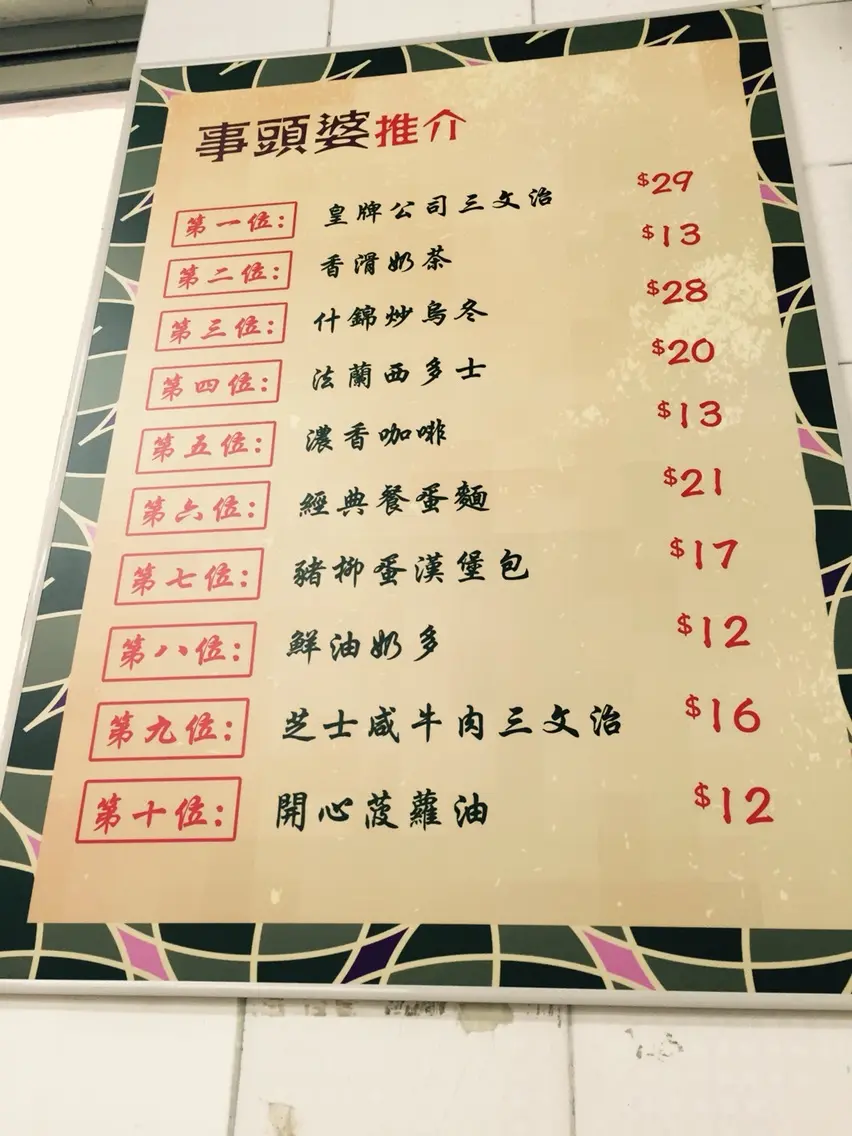 事頭婆推介
第一位： 皇牌公司三文治 $29
第二位： 香滑奶茶 $13
第三位： 什錦炒烏冬 $28
第四位： 法蘭西多士 $20
第五位： 濃香咖啡 $13
第六位： 經典餐蛋麵 $21
第七位： 豬柳蛋漢堡包 $17
第八位： 鮮油奶多 $12
第九位： 芝士咸牛肉三文治 $16
第十位： 開心菠蘿油 $12